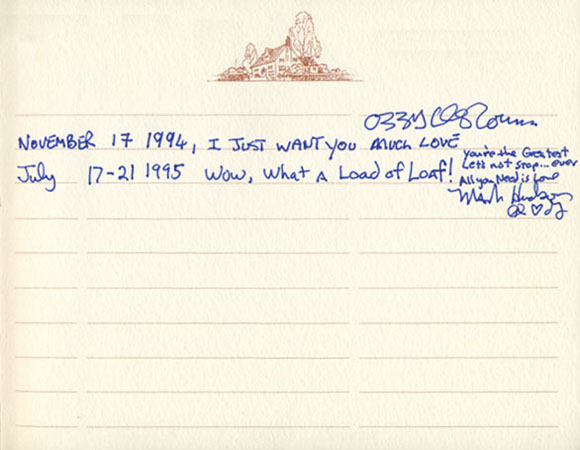 Ozzy Osbourne
NOVEMBER 17 1994, I JUST WANT YOU MUCH LOVE
July 17-21 1995 Wow, What A Load of Loaf!
You're the Greatest
Let's not stop... ever
All you Need is Love
Mark Hudson